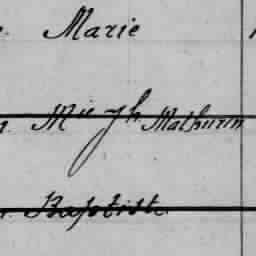 Marie
Mie Jh Mathurin
Baptiste